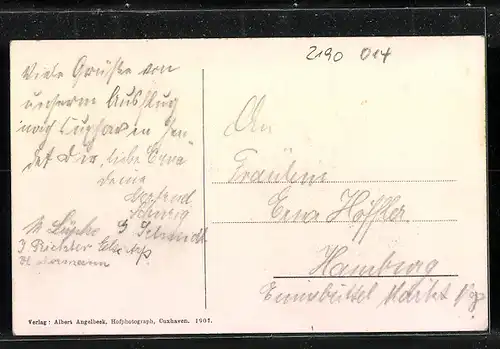 2190 014
Viele Grüße von
unserm Ausflug
nach Cuxhaven sen-
det Dir, liebe Erna
deine
J. Schmidt
J. Richter
An
Fräulein
Erna Höffler
Hamburg
Eimsbüttel Markt
Verlag: Albert Angelbeck, Hofphotograph, Cuxhaven. 1907.